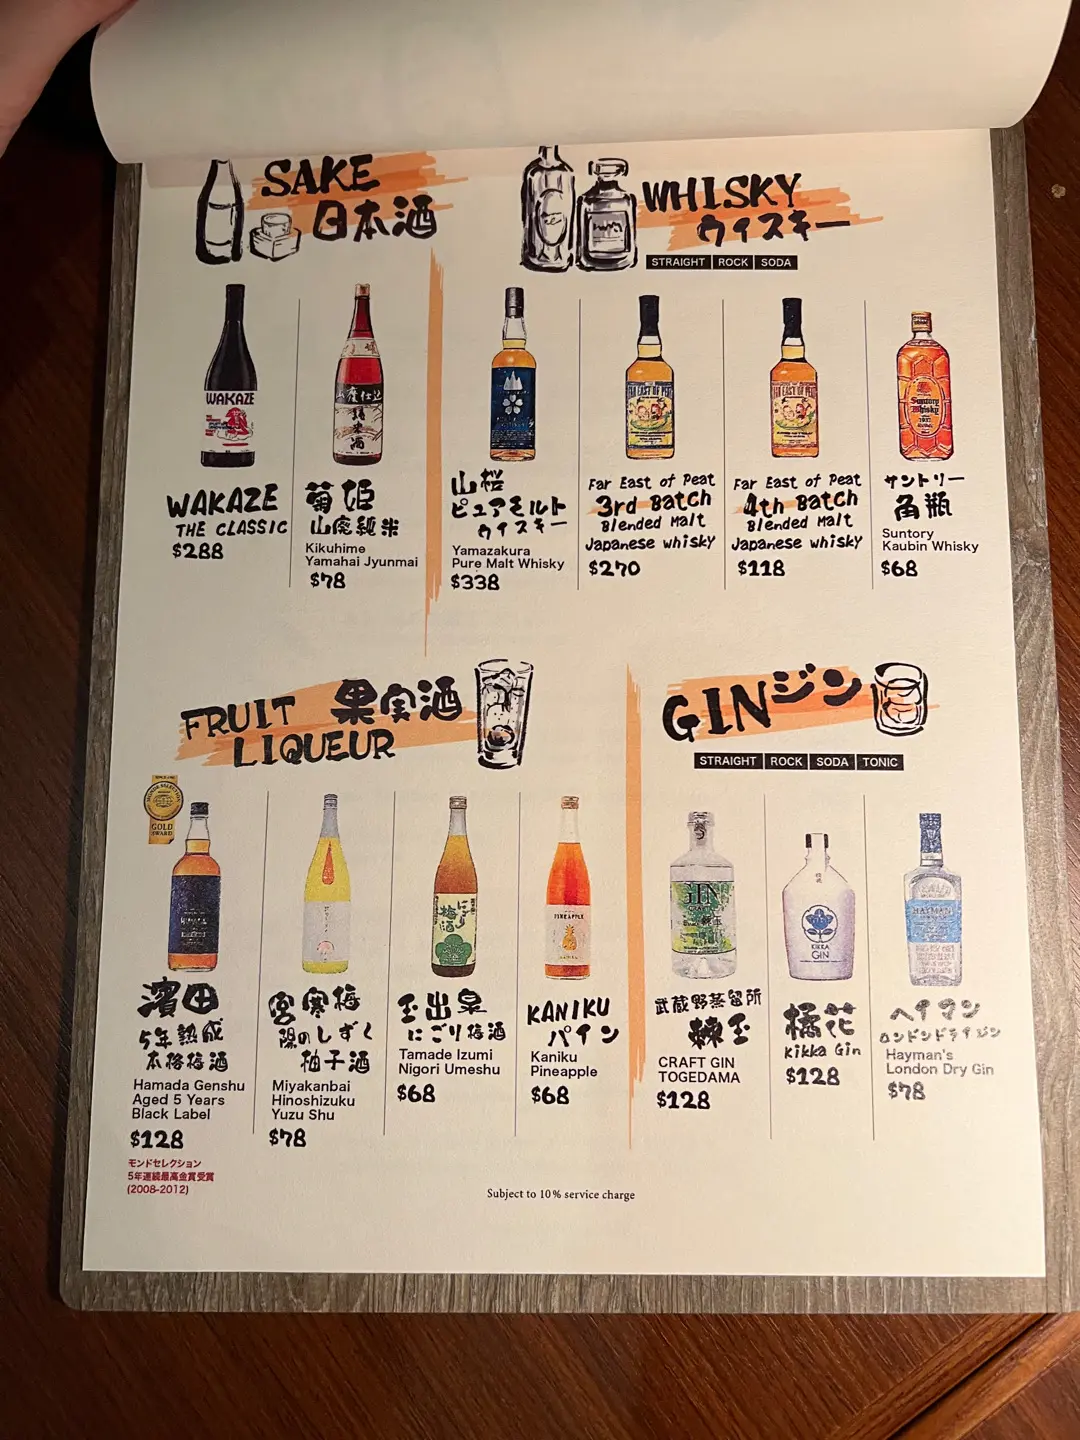 SAKE
日本酒
WHISKY
ウイスキー
STRAIGHT ROCK SODA
WAKAZE
THE CLASSIC
$288
菊姫
山廃純米
Kikuhime
Yamahai Jyunmai
$78
山桜
ピュアモルト
ウイスキー
Yamazakura
Pure Malt Whisky
$338
Far East of Peat
3rd Batch
Blended Malt
Japanese whisky
$270
Far East of Peat
4th Batch
Blended Malt
Japanese whisky
$118
サントリー
角瓶
Suntory
Kaubin Whisky
$68
WAKAZE
山廃仕込
純米酒
FAR EAST OF PEAT
FAR EAST OF PEAT
Suntory
Whisky
FRUIT 果実酒
LIQUEUR
GINジン
STRAIGHT ROCK SODA TONIC
GOLD
AWARD
濱田
5年熟成
本格梅酒
Hamada Genshu
Aged 5 Years
Black Label
$128
モンドセレクション
5年連続最高金賞受賞
(2008-2012)
宮寒梅
陽のしずく
柚子酒
Miyakanbai
Hinoshizuku
Yuzu Shu
$78
玉出泉
にごり梅酒
Tamade Izumi
Nigori Umeshu
$68
KANIKU
パイン
Kaniku
Pineapple
$68
武蔵野蒸留所
棘玉
CRAFT GIN
TOGEDAMA
$128
橘花
Kikka Gin
$128
ヘイマン
ロンドンドライジン
Hayman's
London Dry Gin
$78
にごり
梅酒
PINEAPPLE
GIN
KIKKA
GIN
HAYMAN'S
Subject to 10% service charge